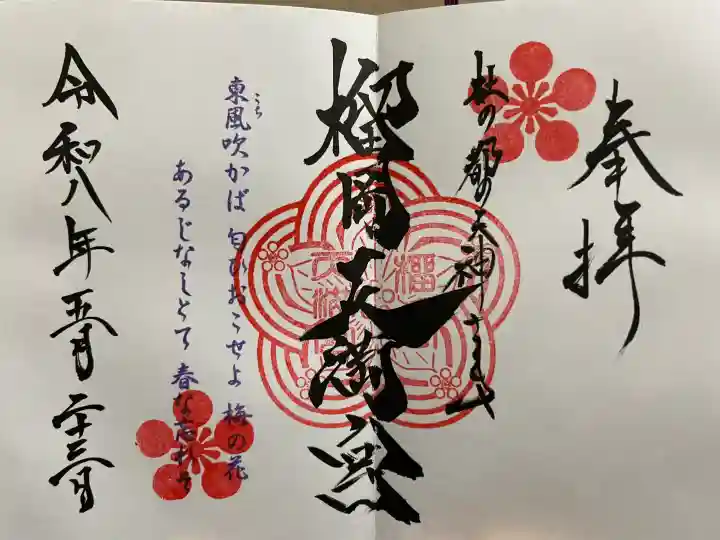 奉拝
杜の都の天神さまや
榴岡天満宮
東風吹かば 匂ひおこせよ 梅の花
こち
あるじなしとて 春な忘れそ
令和八年五月二十三日